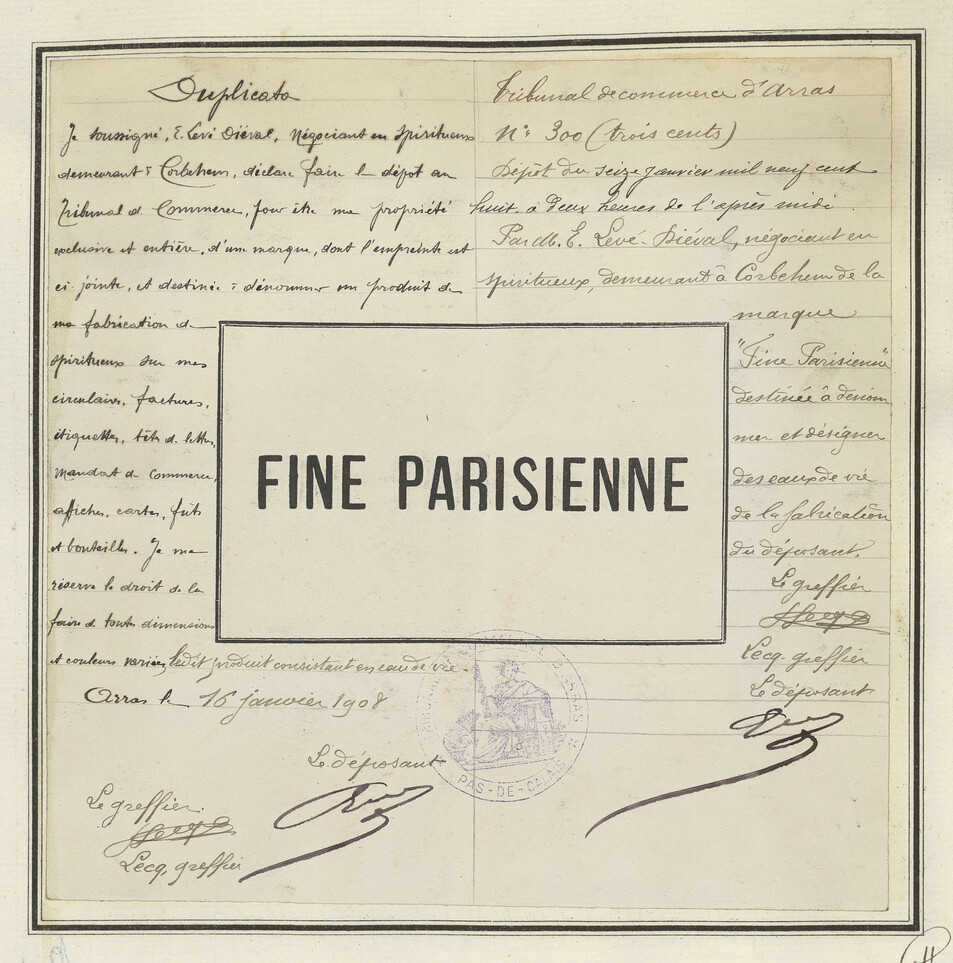 Duplicata
Je soussigné, E. Levé Diéval, Négociant en Spiritueux
demeurant à Corbehem, déclare faire le dépôt au
Tribunal de Commerce, pour être ma propriété
exclusive et entière, d'une marque, dont l'empreinte est
ci jointe, et destinée à dénommer un produit de
ma fabrication de
spiritueux sur mes
circulaires, factures,
étiquettes, têtes de lettres,
Mandat de Commerce,
affiches, cartes, fûts
et bouteilles. Je me
réserve le droit de la
faire de toutes dimensions
et couleurs variées, ledit produit consistant en eau de vie.
Arras le 16 janvier 1908
Le déposant
Le greffier
Lecq, greffier
Tribunal de commerce d'Arras
N° 300 (trois cents)
Dépôt du seize janvier mil neuf cent
huit à deux heures de l'après midi.
Par M. E. Levé-Diéval, négociant en
spiritueux, demeurant à Corbehem de la
marque
"Fine Parisienne"
destinée à dénom
mer et désigner
des eaux de vie
de la fabrication
du déposant.
Le greffier
Lecq. greffier
Le déposant
FINE PARISIENNE
PAS-DE-CALAIS